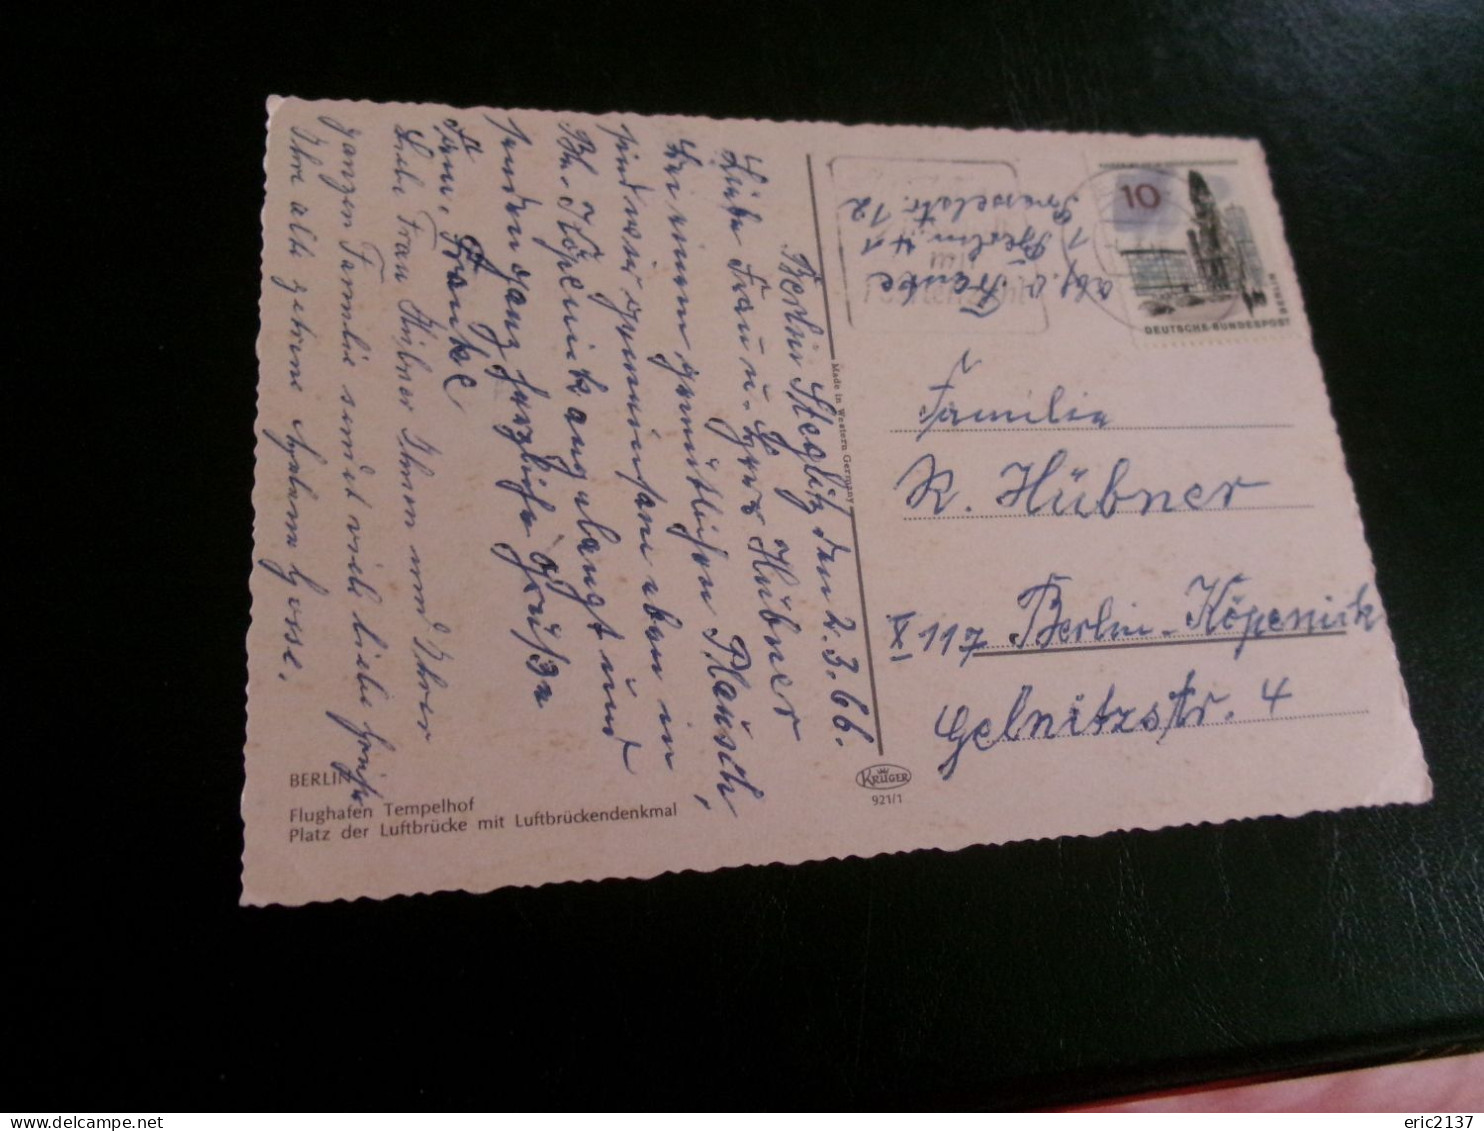 Berlin Steglitz den 2.3.66.
Liebe Frau u. Herr Hübner
bei einem gemütlichen Plausch,
sind wir gemeinsam eben in
Bln. Köpenick angelangt und
senden ganz herzliche Grüße
Fam. Franke
Liebe Frau Hübner Ihnen und Ihrer
ganzen Familie sendet viele liebe Grüße
Ihre alte getreue
BERLIN
Flughafen Tempelhof
Platz der Luftbrücke mit Luftbrückendenkmal
Made in Western Germany
KRÜGER
921/1
Abs. v. Franke
1 Berlin 41
12
10
DEUTSCHE BUNDESPOST
BERLIN
Familie
K. Hübner
X 117 Berlin-Köpenick
Gelnitzstr. 4
eric2137